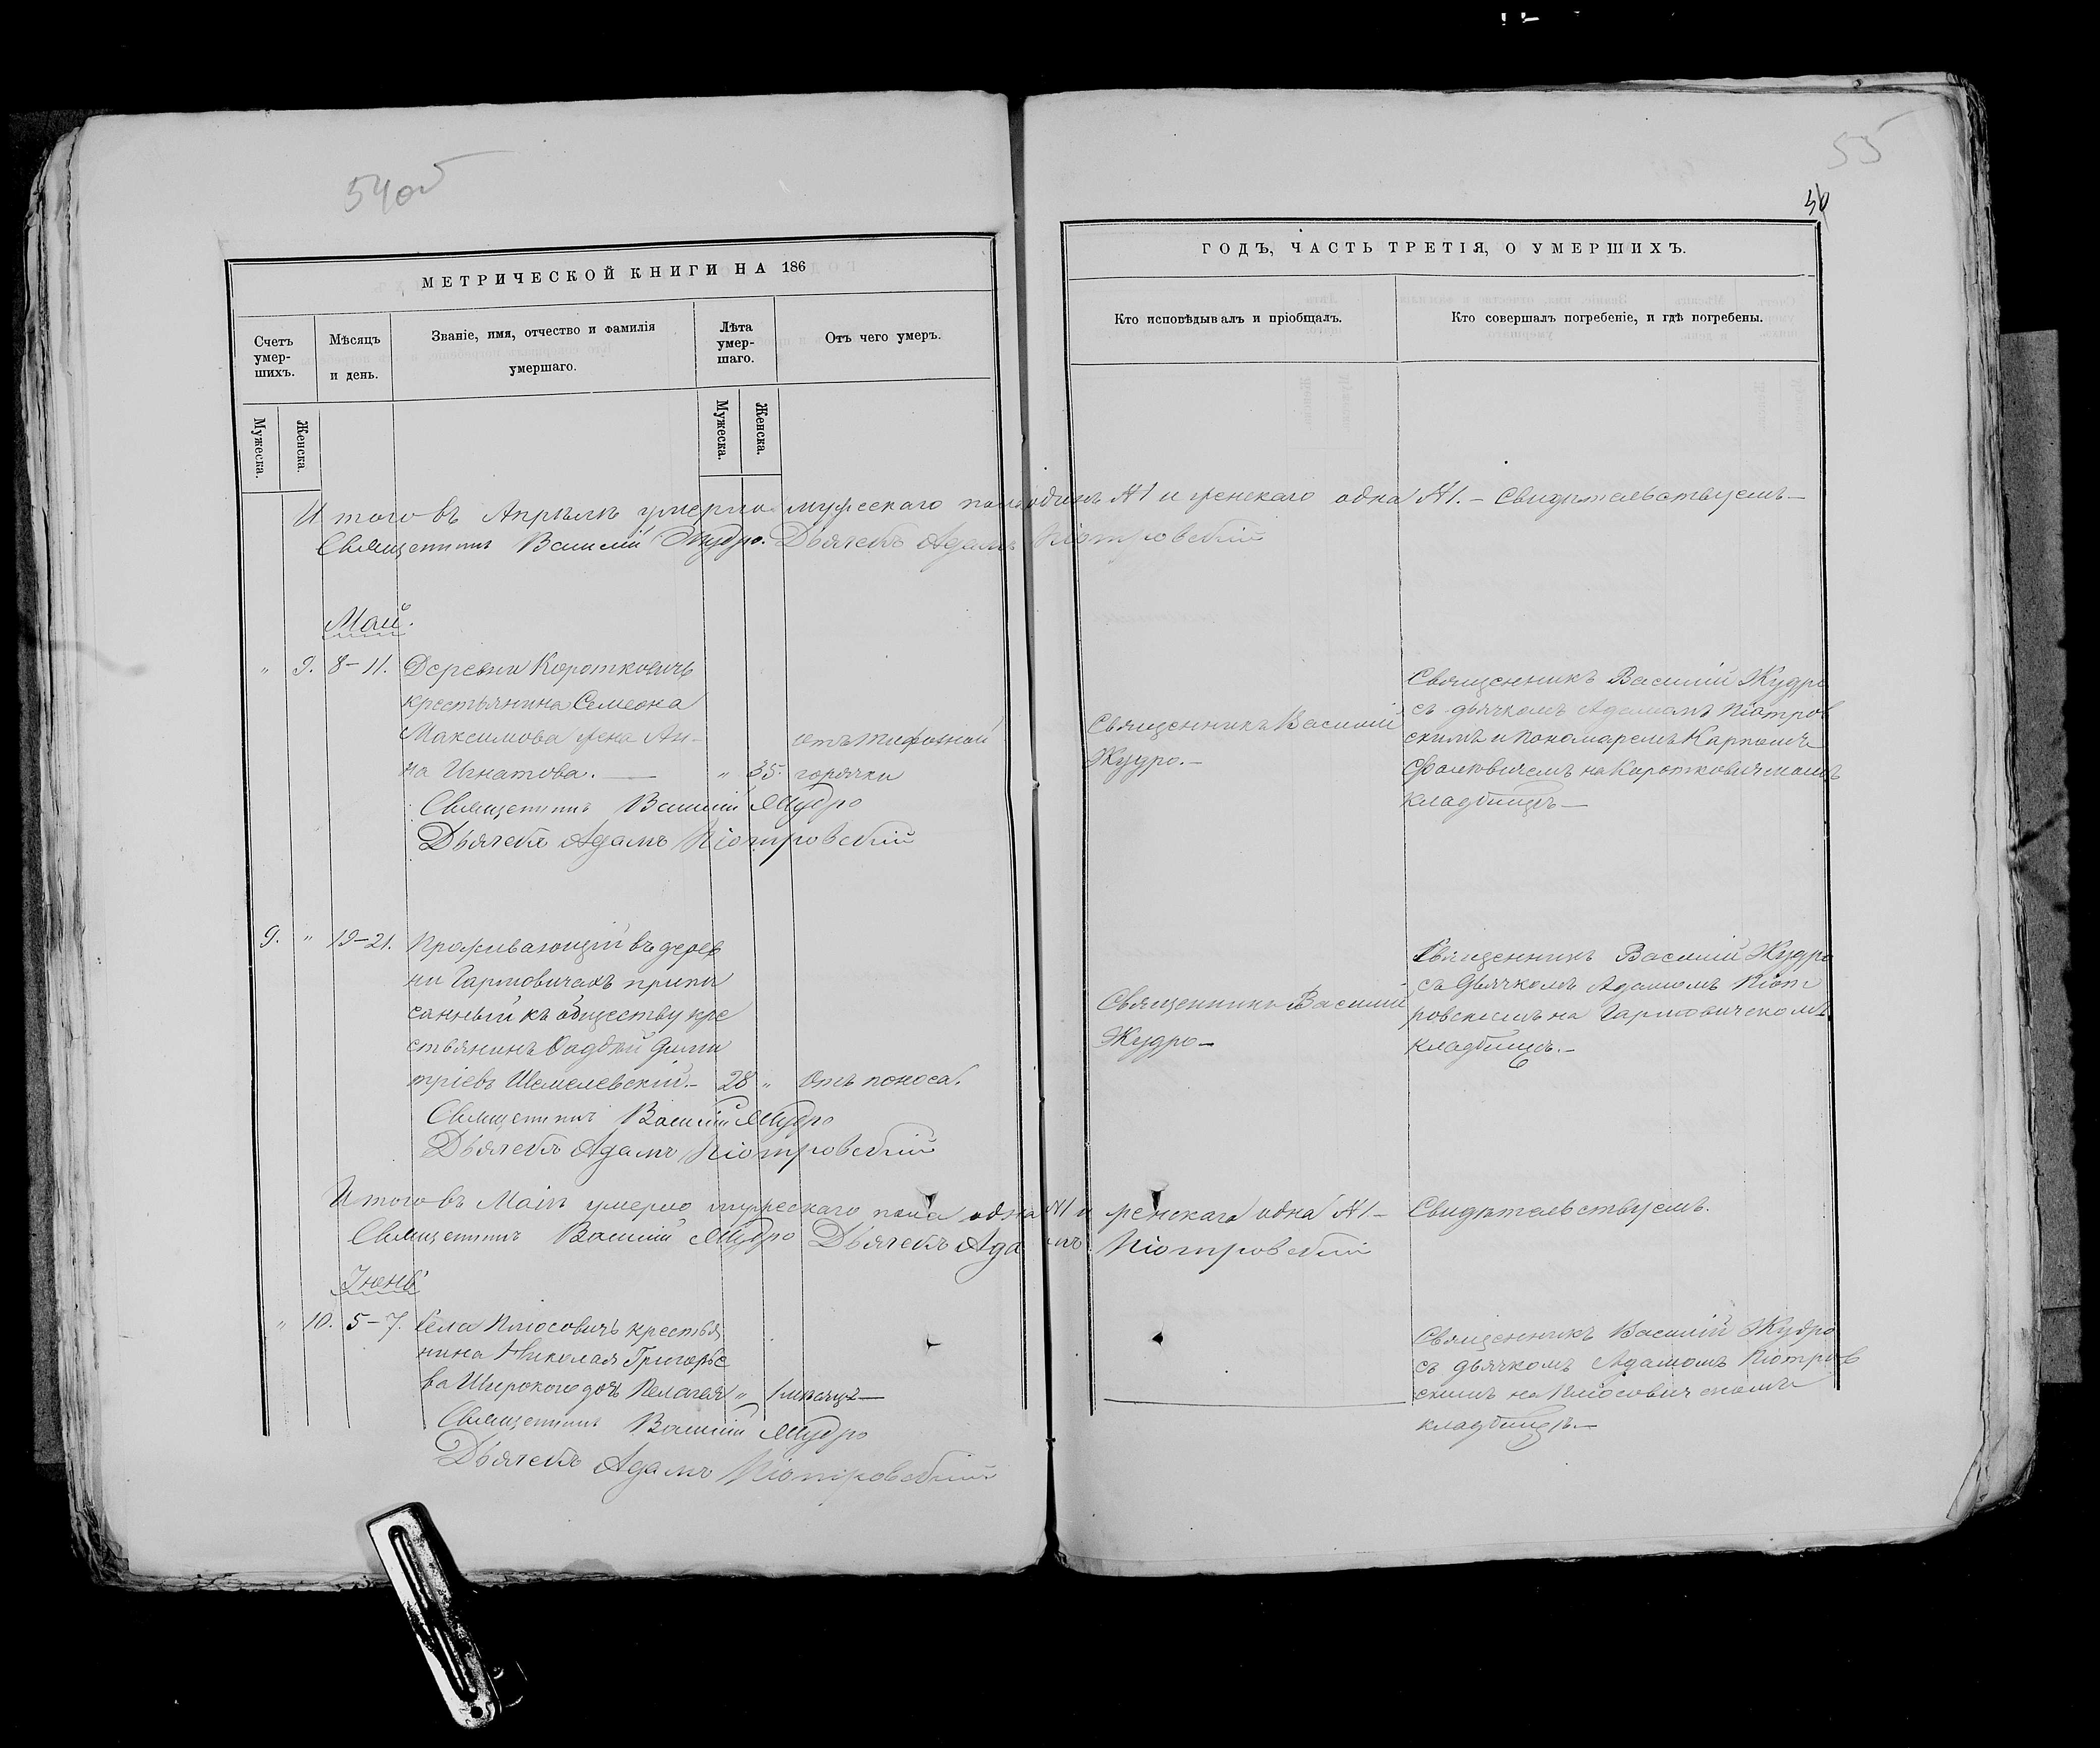 54об
МЕТРИЧЕСКОЙ КНИГИ НА 186
Счетъ умер-шихъ.
Мѣсяцъ и день.
Званіе, имя, отчество и фамилія умершаго.
Лѣта умер-шаго.
Отъ чего умеръ.
Мужеска.
Женска.
Мужеска.
Женска.
55
50
ГОДЪ, ЧАСТЬ ТРЕТІЯ, О УМЕРШИХЪ.
Кто исповѣдывалъ и пріобщалъ.
Кто совершалъ погребеніе, и гдѣ погребены.
Итого въ Апрѣлѣ умерло мужескаго пола одинъ №1 и женскаго одна №1. — Свидѣтельствуемъ —
Священникъ Василій Жудро. Дьячекъ Адамъ Піотровскій
Май.
" 9. 8–11. Деревни Короткович
крестьянина Симеона
Максимова жена Ан-
на Игнатова. — " 35.
отъ тифозной
горячки
Священникъ Василій
Жудро.—
Священникъ Василій Жудро
съ дьячкомъ Адамомъ Піотров
скимъ и пономаремъ Карпомъ
на Коротковичскомъ
кладбищѣ—
Священникъ Василій Жудро
Дьячекъ Адамъ Піотровскій
9. " 19–21. Проживающій въ дерев
ни Гармовичахъ припи
санный къ обществу кре
стьянинъ Фаддѣй Дими
тріевъ Шемелевскій.— 28 " Отъ поноса.
Священникъ Василій
Жудро—
Священникъ Василій Жудро
съ дьячкомъ Адамомъ Піот
ровскимъ на Гармовичскомъ
кладбищѣ.—
Священникъ Василій Жудро
Дьячекъ Адамъ Піотровскій
Итого въ Маіѣ умерло мужескаго пола одинъ №1 и женскаго одна №1— Свидѣтельствуемъ.
Священникъ Василій Жудро Дьячекъ Адамъ Піотровскій
Іюнь
" 10. 5–7. Села Плюсовичъ крестья
нина Николая Григорье
ва Широкого дочь Пелагея " 1 мѣсяцъ—
Священникъ Василій Жудро
съ дьячкомъ Адамомъ Піотров
скимъ на Плюсовичскомъ
кладбищѣ.—
Священникъ Василій Жудро
Дьячекъ Адамъ Піотровскій